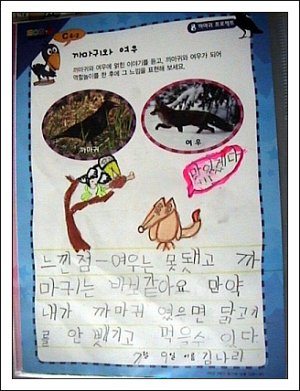 까마귀 프로젝트
까마귀와 여우
까마귀와 여우에 얽힌 이야기를 듣고, 까마귀와 여우가 되어
역할놀이를 한 후에 그 느낌을 표현해 보세요.
까마귀
여우
맛있겠다
느낀점-여우는 못됐고 까
마귀는 바보같아요 만약
내가 까마귀 였으면 닭고기
를 안 뺏기고 먹을수 있다
7월 9일 이름 김나리